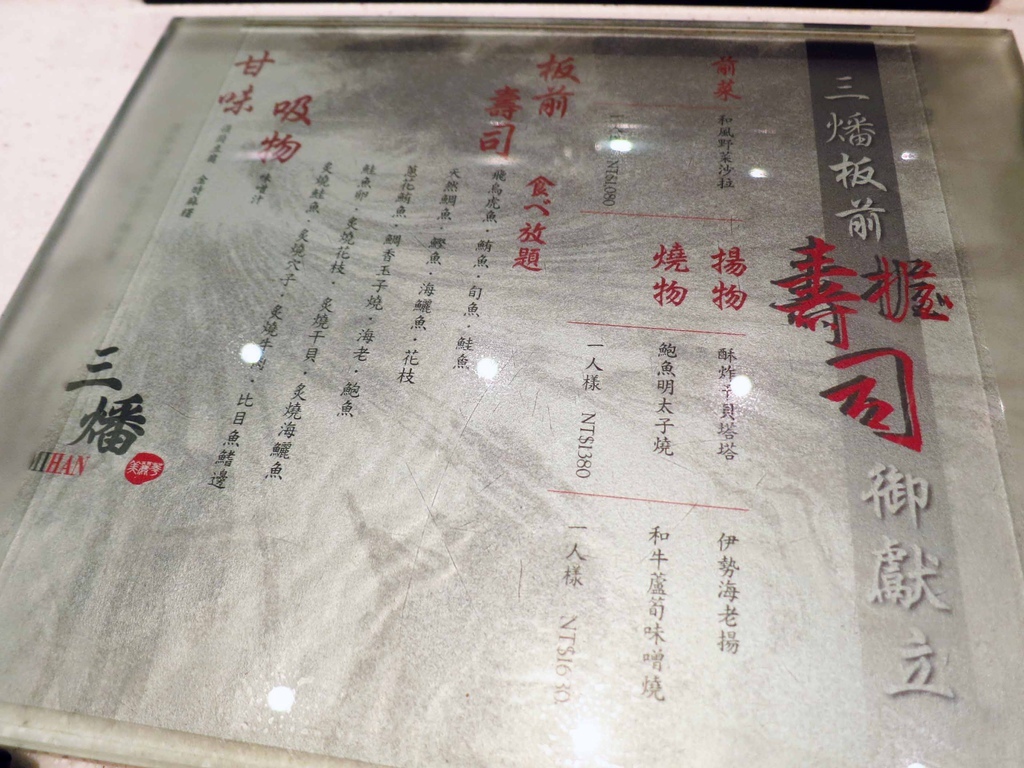 三燔板前
握壽司
御獻立
前菜
和風野菜沙拉
NT$1080
揚物
酥炸干貝塔塔
伊勢海老揚
燒物
鮑魚明太子燒
和牛蘆筍味噌燒
一人樣 NT$1380
一人樣 NT$1630
板前壽司
食べ放題
飛烏虎魚·鮪魚·旬魚·鮭魚
天然鯛魚·鰹魚·海鱺魚·花枝
蔥花鮪魚·鯛香玉子燒·海老·鮑魚
鮭魚卵·炙燒花枝·炙燒干貝·炙燒海鱺魚
炙燒鮭魚·炙燒穴子·炙燒牛肉·比目魚鰭邊
吸物
味噌汁
甘味
三燔
MIHAN
美麗華